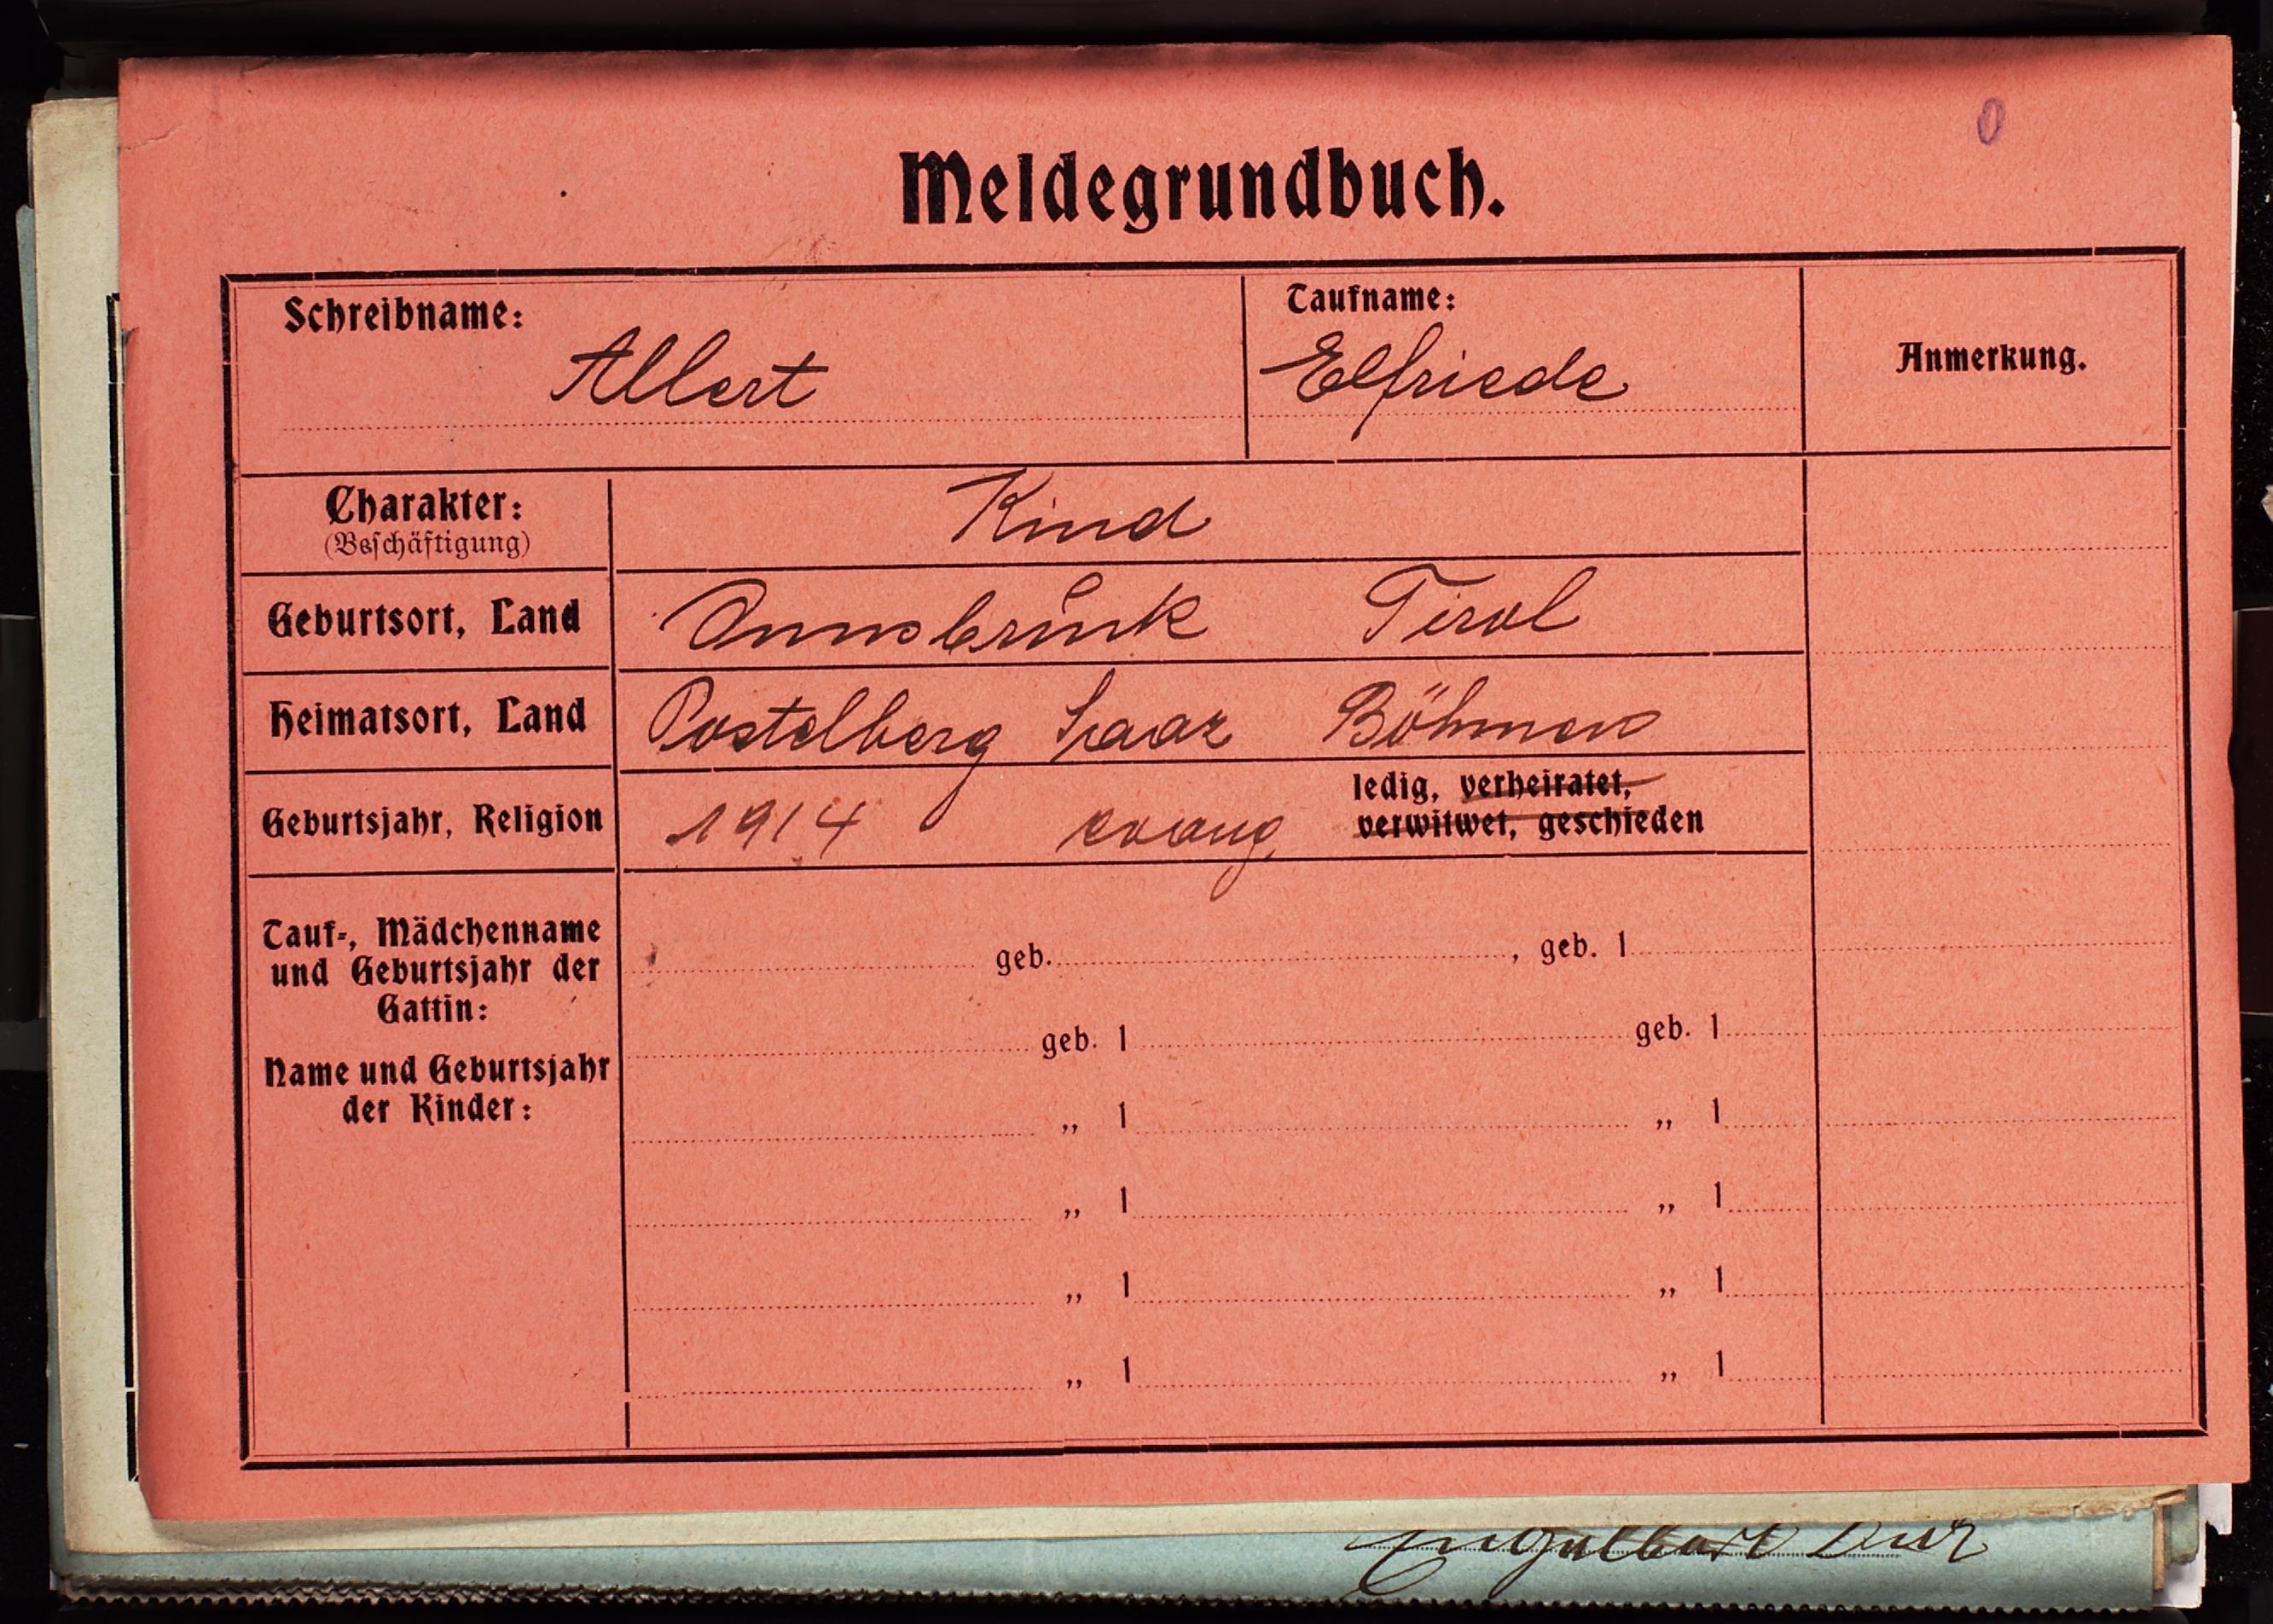 0
Meldegrundbuch.
Schreibname:
Allert
Taufname:
Elfriede
Anmerkung.
Charakter:
(Beschäftigung)
Kind
Geburtsort, Land
Innsbruck Tirol
Heimatsort, Land
Postelberg Saaz Böhmen
Geburtsjahr, Religion
1914 evang.
ledig, verheiratet,
verwitwet, geschieden
Tauf-, Mädchenname
und Geburtsjahr der
Gattin:
geb. , geb. 1
geb. 1 geb. 1
Name und Geburtsjahr
der Kinder:
„ 1 „ 1
„ 1 „ 1
„ 1 „ 1
„ 1 „ 1